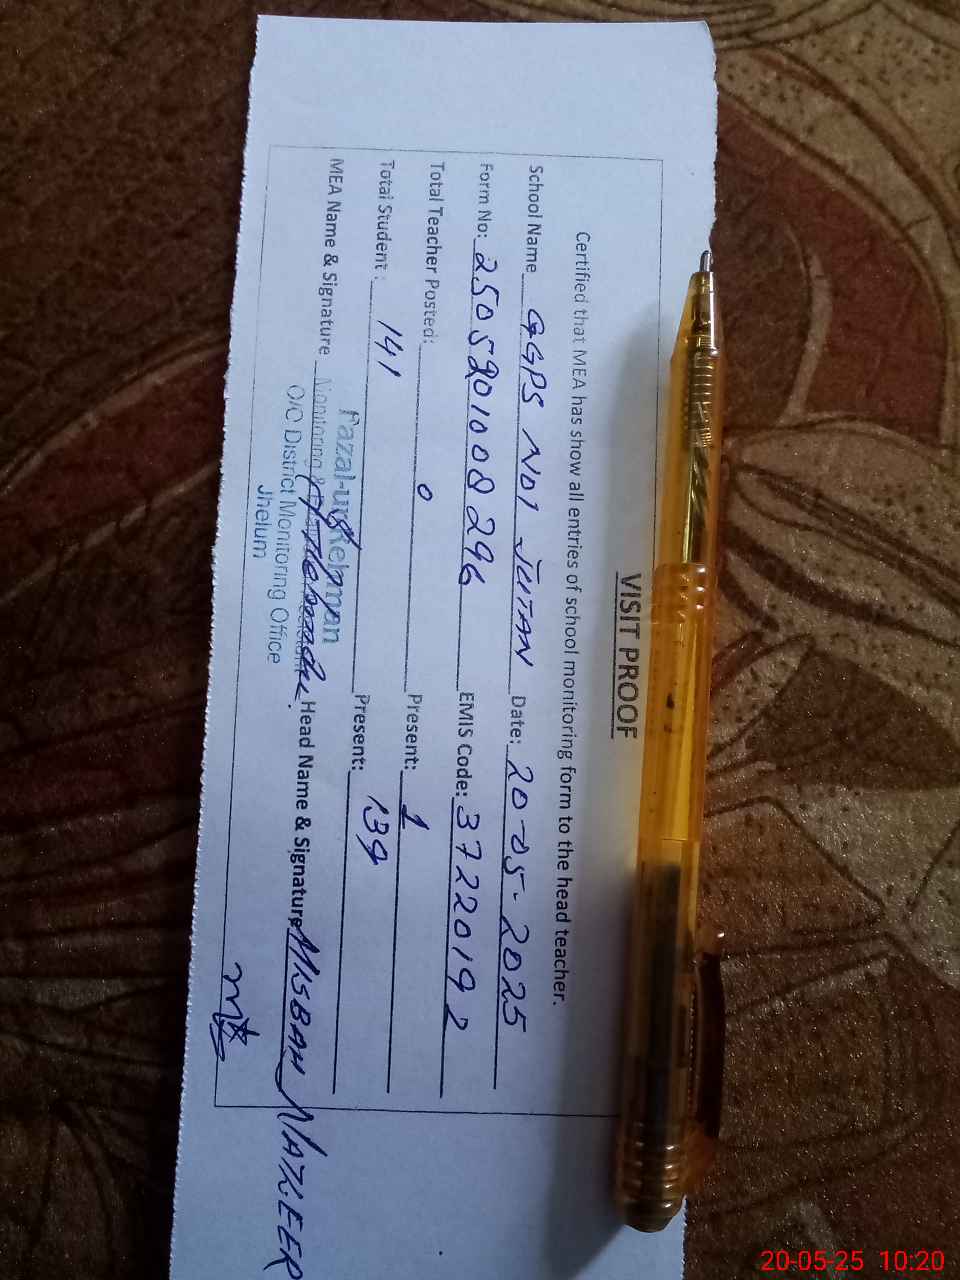 VISIT PROOF
Certified that MEA has show all entries of school monitoring form to the head teacher.
School Name GGPS NO1 JUTAN Date: 20-05-2025
Form No: 2505201008296 EMIS Code: 37220192
Total Teacher Posted: 0 Present: 1
Total Student: 141 Present: 139
Fazal-ur-Rehman
MEA Name & Signature Monitoring & Head Name & Signature MISBAH NAZEER
O/O District Monitoring Office
Jhelum
20-05-25 10:20